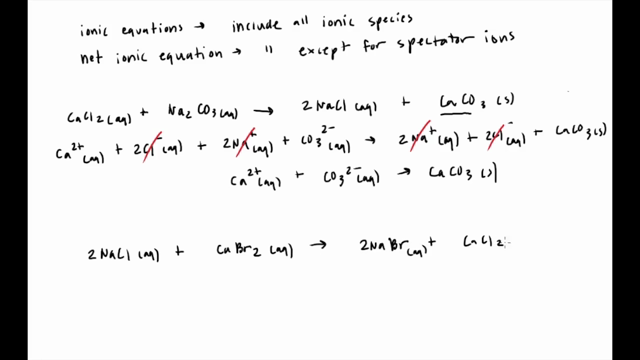 ionic equations → include all ionic species
net ionic equation → " except for spectator ions
CaCl2(aq) + Na2CO3(aq) → 2NaCl(aq) + CaCO3(s)
Ca2+(aq) + 2Cl-(aq) + 2Na+(aq) + CO3 2-(aq) → 2Na+(aq) + 2Cl-(aq) + CaCO3(s)
Ca2+(aq) + CO3 2-(aq) → CaCO3(s)
2NaCl(aq) + CaBr2(aq) → 2NaBr(aq) + CaCl2